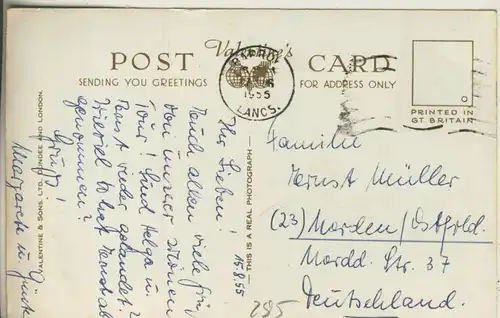 Valentine's
POST CARD
SENDING YOU GREETINGS
FOR ADDRESS ONLY
LANCS.
1955
PRINTED IN
GT. BRITAIN
VALENTINE & SONS, LTD., DUNDEE AND LONDON.
THIS IS A REAL PHOTOGRAPH
15.8.55
Ihr Lieben!
Euch allen viele
von unserer schönen
Tour! Sind Helga u.
Ernst wieder gelandet?
Wieviel hat Ernst ab
genommen?
Gruß!
Margarete u.
Familie
Ernst Müller
(23) Norden/Ostfrld.
Nordd. Str. 37
Deutschland.
285